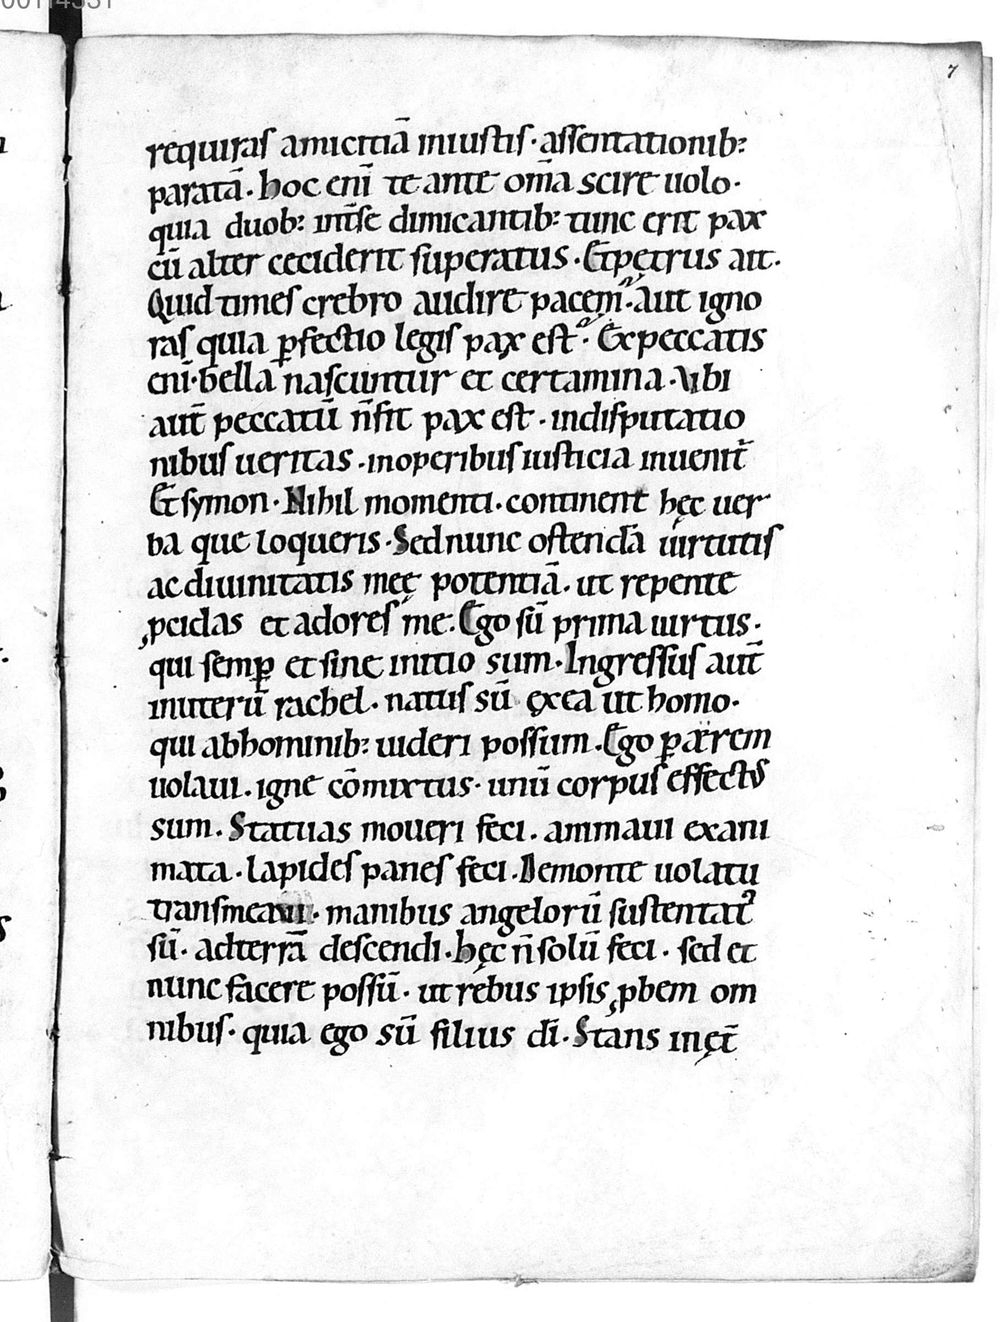 7
requiraſ amicitiā iniuſtiſ · aſſentationib:
paratā · hoc enī te ante om̄a scire uolo ·
quia duob: int̄se dimicantib: tunc erit pax
cū alter ceciderit ſuperatus · Et petrus ait ·
Quid timeſ crebro audire pacem · aut igno
raſ quia ꝑfectio legiſ pax eſt · Ex peccatis
enī · bella naſcuntur et certamina · Vbi
aut̄ peccatū n̄ fit pax eſt · in diſputatio
nibuſ ueritas · in operibuſ iuſticia inuenit̄
Et ſymon · Nihil momenti · continent hęc uer
ba que loqueris · Sed nunc oſtendā uirtutiſ
ac diuinitatis meę potentiā · ut repente
ꝓcidas et adoreſ me · Ego ſū prima uirtus ·
qui ſemꝑ et ſine initio sum · Ingreſſuſ aut̄
in uterū rachel · natuſ sū ex ea ut homo ·
qui ab hominib: uideri poſſum · Ego ꝑ aerem
uolaui · igne cōmixtus · unū corpuſ effectus
sum · Statuas moueri feci · animaui exani
mata · lapideſ paneſ feci · De monte uolatu
tranſmeaui · manibus angelorū ſuſtentat᷒
ſū · ad terrā deſcendi · hęc n̄ ſolū feci · ſed et
nunc facere poſſū · ut rebus ipſis ꝓbem om
nibuſ · quia ego sū filius dī · Stans in ęt̄